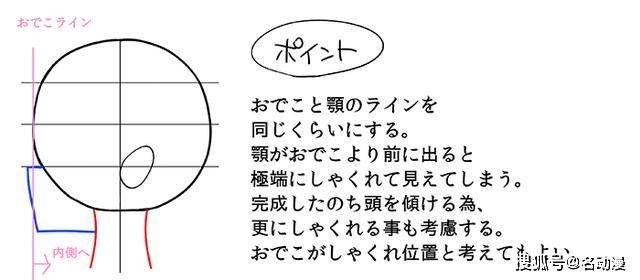 おでこライン
ポイント
おでこと顎のラインを
同じくらいにする。
顎がおでこより前に出ると
極端にしゃくれて見えてしまう。
完成したのち頭を傾ける為、
更にしゃくれる事も考慮する。
おでこがしゃくれ位置と考えてもよい
内側へ
搜狐号@名动漫